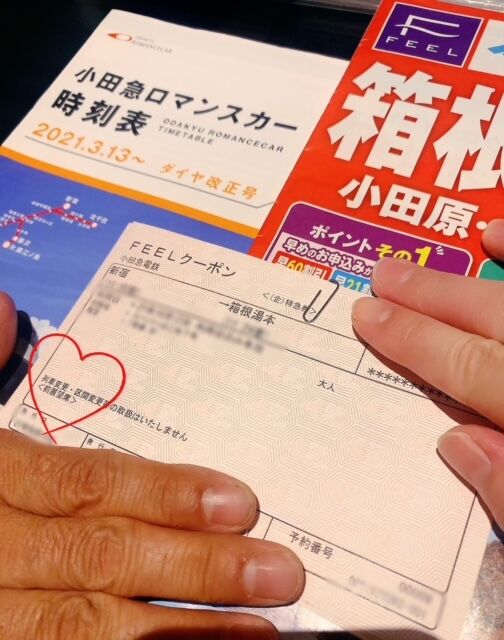 ROMANCECAR
小田急ロマンスカー
時刻表
ODAKYU ROMANCECAR
TIMETABLE
2021.3.13～ ダイヤ改正号
FEEL
箱根
小田原・
ポイント その1
早めのお申込みが
早60割引
早21割
FEELクーポン
小田急電鉄
<(企)特急券>
新宿
→箱根湯本
大人
列車変更・区間変更等の取扱はいたしません
<前展望席>
予約番号